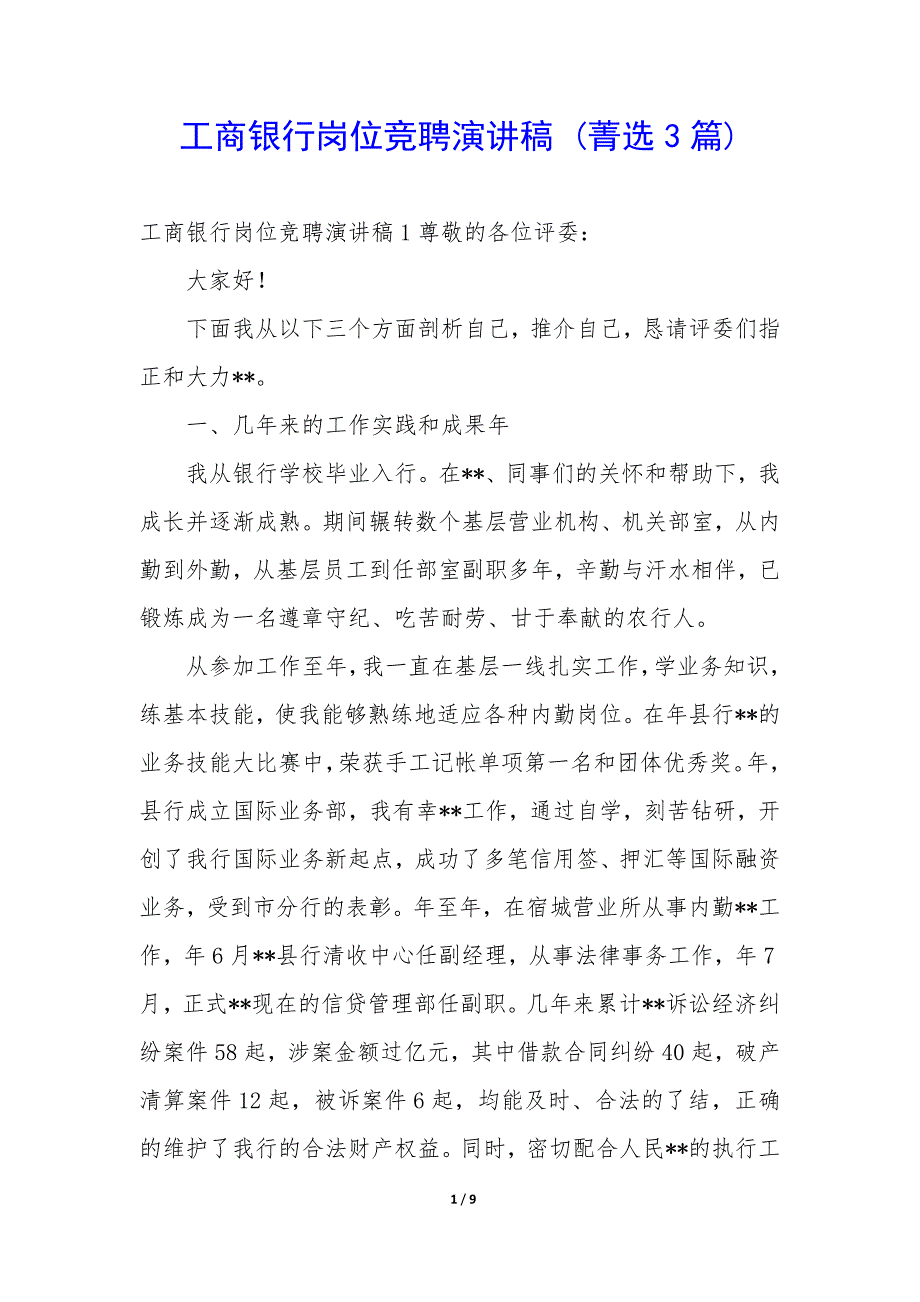 工商银行岗位竞聘演讲稿 (菁选 3 篇)
工商银行岗位竞聘演讲稿 1 尊敬的各位评委：
大家好！
下面我从以下三个方面剖析自己，推介自己，恳请评委们指
正和大力**。
一、几年来的工作实践和成果年
我从银行学校毕业入行。在**、同事们的关怀和帮助下，我
成长并逐渐成熟。期间辗转数个基层营业机构、机关部室，从内
勤到外勤，从基层员工到任部室副职多年，辛勤与汗水相伴，已
锻炼成为一名遵章守纪、吃苦耐劳、甘于奉献的农行人。
从参加工作至年，我一直在基层一线扎实工作，学业务知识，
练基本技能，使我能够熟练地适应各种内勤岗位。在年县行**的
业务技能大比赛中，荣获手工记帐单项第一名和团体优秀奖。年，
县行成立国际业务部，我有幸**工作，通过自学，刻苦钻研，开
创了我行国际业务新起点，成功了多笔信用签、押汇等国际融资
业务，受到市分行的表彰。年至年，在宿城营业所从事内勤**工
作，年 6 月**县行清收中心任副经理，从事法律事务工作，年 7
月，正式**现在的信贷管理部任副职。几年来累计**诉讼经济纠
纷案件 58 起，涉案金额过亿元，其中借款合同纠纷 40 起，破产
清算案件 12 起，被诉案件 6 起，均能及时、合法的了结，正确
的维护了我行的合法财产权益。同时，密切配合人民**的执行工
1 / 9